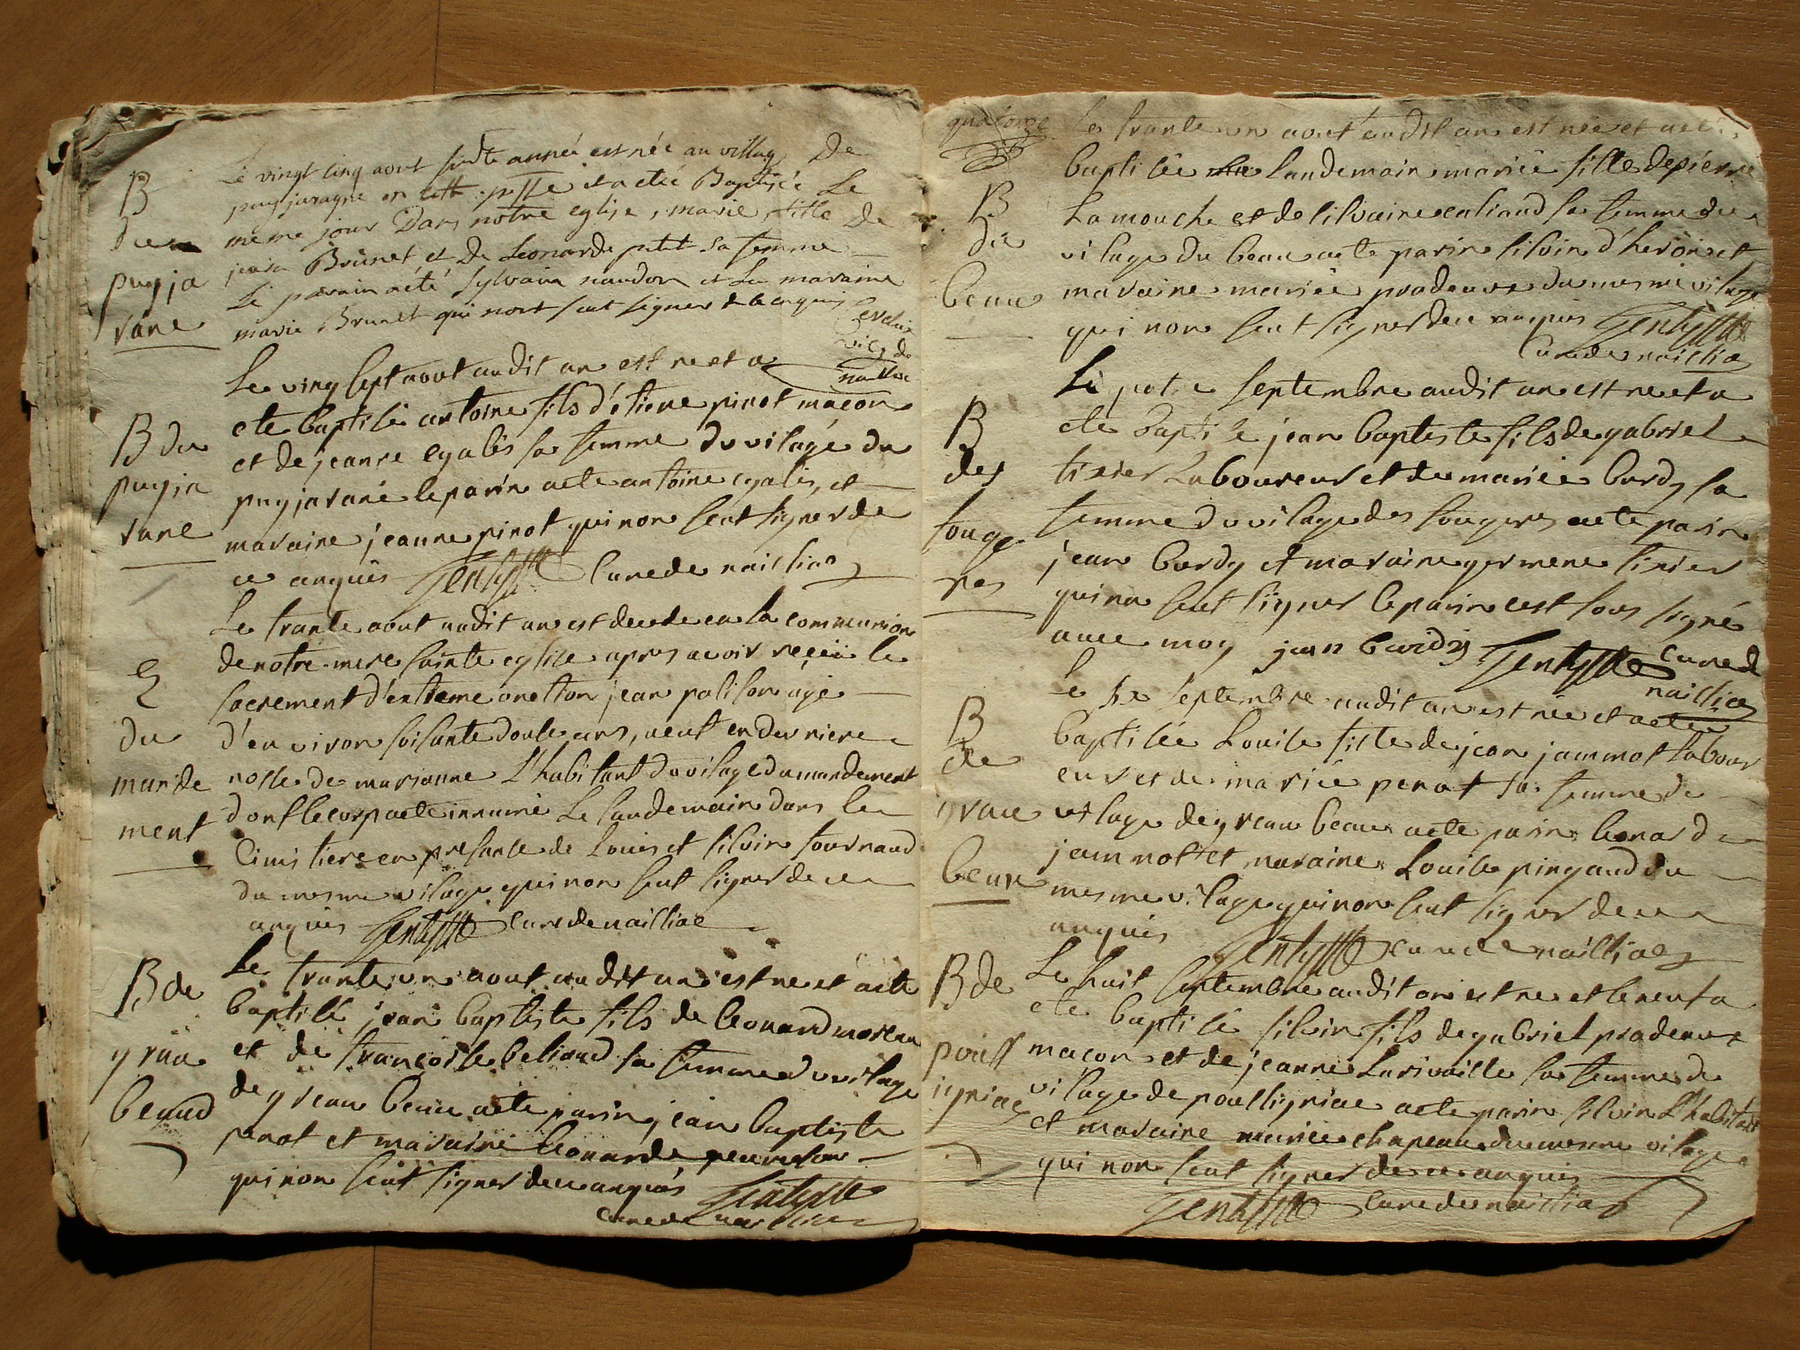 B
du
puyja
rane
Le vingt cinq aout susdte année est née au village De
puyjaragne en cette psse et a eteé Baptisée Le
meme jour Dans notre eglise, marie, fille De
jean Brunet et De Leonarde petit sa femme
Le parain a été Sylvain naudon et La maraine
marie Brunet qui n'ont scut signer de ce enquis
vic. de
B du
puyja
rane
Le ving sept aout audit an est ne et a
ete baptisé antoine fils d'étiene pinot macon
et de jeanne egalis sa femme du vilage du
puyjarané le parin a ete antoine egalis, et
maraine jeanne pinot qui non seut signer de
ce anquis Gentysse Cure de nailliac
du
mande
ment
Le trante aout audit an est decede en la communion
de notre mere sainte eglise apres avoir reçeu le
sacrement d'extreme onction jean palison agé
d'environ soisante doute ans, veut en derniere
nosse de marianne L'habitant du vilage du mandement
dont le corp a ete innumé Le landemain dans le
Cimistiere en presante de Louis et silvin fournaud
du mesme vilage qui non seut signer de ce
anquis Gentysse Cure de nailliac
B de
grau
beaud
Le trante un aout audit an est ne et a ete
baptisé jean baptiste fils de leonard moreau
et de françoise beliaud sa femme du vilage
de greau beau a ete parin jean baptiste
penot et maraine leonarde
qui non scut signer de ce anquis Gentysse
Cure de nailliac
quatorze
B
du
beau
Le trante un aout audit an est née et a eté
baptisée landemain mariee fille de pierre
Lamouche et de silvaine caliaud sa femme du
vilage du beau a ete parin silvin d'heron et
maraine mariée pradeaux du mesme vilage
qui non seut signer de ce anquis Gentysse
Cure de nailliac
B
des
fouge
res
Le septembre audit an est ne et a
ete baptisé jean baptiste fils de gabriel
tixier Laboureur et de mariée burdy sa
femme du vilage des fougeres a ete parin
jean burdy et maraine germene tixier
qui na seut signer le parin cest sous signé
avec moy jean burdy Gentysse Cure de
nailliac
B
de
grau
beau
Le septembre audit an est née et a ete
baptisée Louise fille de jean jammot labour
eur et de mariée penot sa femme de
vilage de greau beau a ete parin leonard
jammot et maraine Louise pingaud du
mesme vilage qui non seut signer de ce
anquis Gentysse Cure de nailliac
B de
poull
igniac
Le huit septembre audit an est ne et le neuf a
ete baptisé silvin fils de gabriel pradeaux
macon et de jeanne Larivaille sa femme du
vilage de poulligniac a ete parin silvin L'habitant
et maraine mariée chapeau du mesme vilage
qui non seut signer de ce anquis
Gentysse Cure de nailliac